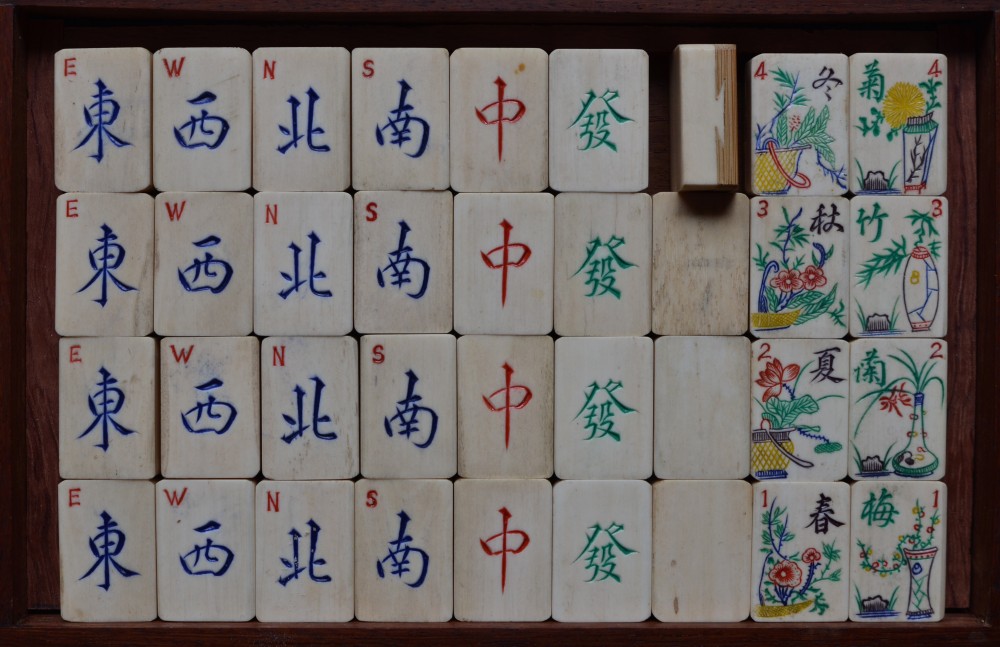 E 東 W 西 N 北 S 南 中 發 4 冬 菊 4
E 東 W 西 N 北 S 南 中 發 3 秋 竹 3
E 東 W 西 N 北 S 南 中 發 2 夏 蘭 2
E 東 W 西 N 北 S 南 中 發 1 春 梅 1